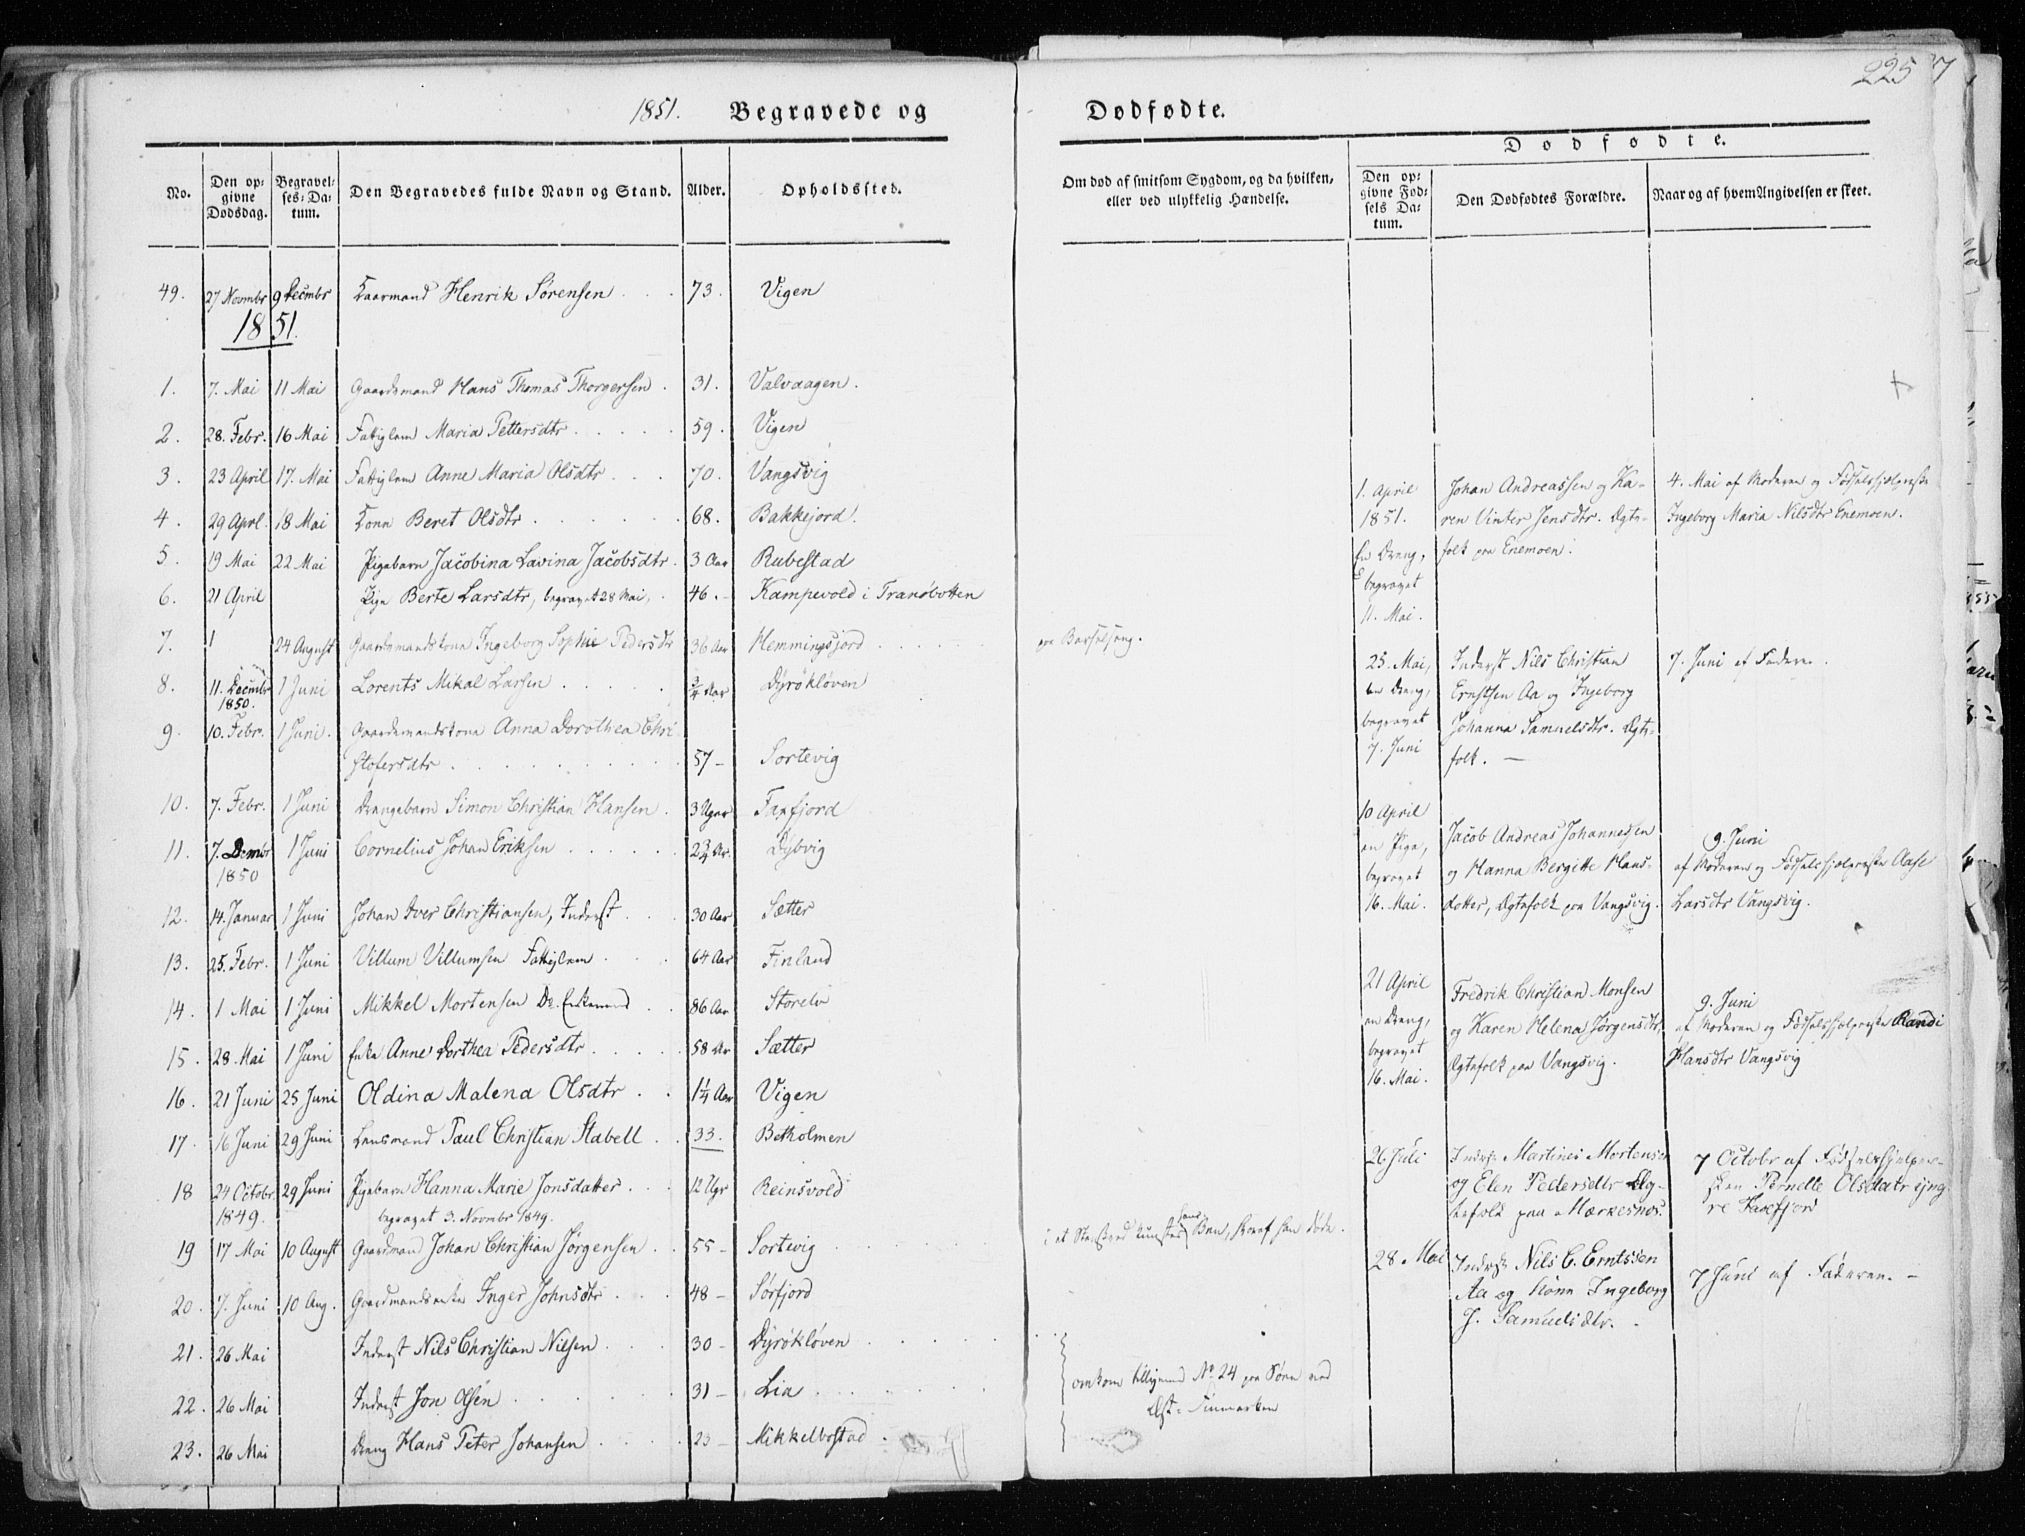 1851. Begravede og
No. | Den opgivne Dødsdag. | Begravelses-Datum. | Den Begravedes fulde Navn og Stand. | Alder. | Opholdssted.
49. 27 Novmbr 9 Decmbr Kaarmand Henrik Sørensen . . . 73. Vigen
1851.
1. 7. Mai 11 Mai Gaardsmand Hans Thomas Thorgersen . 31. Valvaagen.
2. 28. Febr. 16 Mai Fattiglem Maria Pettersdtr . . . . 59. Vigen
3. 23 April 17. Mai Fattiglem Anne Maria Olsdtr . . . 70. Vangsvig
4. 29 Aprl. 18 Mai Kone Beret Olsdtr . . . . . . 68. Bakkejord.
5. 19 Mai 22 Mai Pigebarn Jacobina Lavina Jacobsdtr. 3 Aar Rubestad
6. 21 April Pige Berte Larsdtr, begravet 28 Mai, . 46. - Kampevold i Tranøbotten
7. 1 24 August Gaardsmandskone Ingeborg Sophie Pedersdtr 36 Aar Hemmingsjord . . . . . .
8. 11. Decmbr 1 Juni Lorents Mikal Larsen . . . . . 3/4 Aar Dyrøkløven
1850.
9. 10. Febr. 1 Juni. Gaardsmandskone Anna Dorothea Chri
stofersdtr . . . . . . . . . . 57 - Sortevig
10. 7. Febr. 1 Juni Drengebarn Simon Christian Hansen . 3 Uger Taxfjord
11. 7. Dcmbr 1 Juni Cornelius Johan Eriksen . . . . . 2 3/4 Ar. Dybvig
1850
12. 14. Januar 1 Juni Johan Iver Christiansen, Inderst . . . 30 Aar Sætter
13. 25. Febr. 1 Juni Villum Villumsen Fattiglem . . . 64 Aar Finland
14. 1 Mai 1 Juni Mikkel Mortensen Do. Enkemand . . 86 Aar Storelv
15. 28. Mai 1 Juni Enke Anne Dorthea Pedersdtr . . . . 58 Ar Sætter
16. 21 Juni 25 Juni Oldina Malena Olsdtr . . 1 1/4 Aar Vigen
17. 16 Juni 29 Juni Lensmand Paul Christian Stabell . . 33. Betholmen
18 24 Octobr. 29 Juni Pigebarn Hanna Marie Jonsdatter . . . 12 Ugr Reinsvold
1849. begravet 3. Novmbr 1849.
19 17 Mai 10 August Gaardmand Johan Christian Jørgensen . . 55 - Sortevig . . . . . .
20. 7. Juni 10 Aug. Gaardmandsenke Inger Johnsdtr . . . 48 - Sørfjord
21. 26 Mai Inderst Nils Christian Nilsen . . . . 30 - Dyrøkløven . . . . . .
22. 26 Mai Inderst Jon Olsen . . . . . . . 31 - Lia . . . . . .
23. 26 Mai Dreng Hans Peter Johansen . . . . 23 - Mikkelbostad .
225 7
Dødfødte.
Dødfødte.
Om død af smitsom Sygdom, og da hvilken, eller ved ulykkelig Hændelse. | Den opgivne Fødsels Datum. | Den Dødfødtes Forældre. | Naar og af hvem Angivelsen er skeet.
paa Barselseng.
omkom tilligemed No 24 paa Søen ved
Øst-Finmarken
1. April Johan Andreassen og Ka- 4. Mai af Moderen og Fødselshjelperske
1851. ren Vinter Jensdtr. Ægte- Ingeborg Maria Nilsdtr Enemoen.
En Dreng, folk paa Enemoen.
begravet
11. Mai.
25. Mai, Inderst Nils Christian 7. Juni af Faderen.
en Dreng, Ernstsen Aa og Ingeborg
begravet Johanna Samuelsdtr. Ægte-
7. Juni folk. —
10 April Jacob Andreas Johannessen 9. Juni
en Pige, og Hanna Bergitte Hans- af Moderen og Fødselshjelperske Aase
begravet datter, Ægtefolk paa Vangsvig. Larsdtr Vangsvig.
16. Mai.
21 April Fredrik Christian Monsen 9. Juni
en Dreng, og Karen Helena Jørgensdtr. af Moderen og Fødselshjelperske Randi
begravet Ægtefolk paa Vangsvig. Hansdtr Vangsvig
16. Mai.
26 Juli Inderst Martines Mortensen 7 Octobr af Fødselshjelper-
og Elen Pedersdtr Æg- sken Pernelle Olsdatr
tefolk paa Mærkesnes.
28. Mai Inderst Nils C. Erntssen 7 Juni af Faderen. -
Aa og Kone Ingeborg
J. Samuelsdtr.